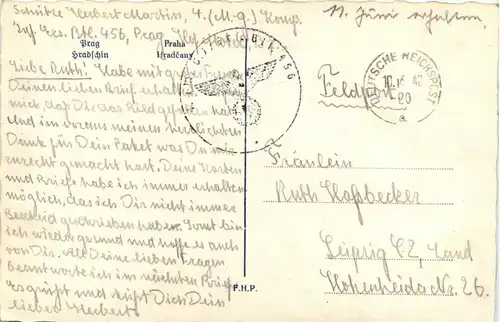 Schütze Herbert Martin, 4. (M.-g.) Komp.
Inf. Ers. Btl. 456, Prag
11. Juni erhalten.
Prag Praha
Hradschin Hradčany
456
DEUTSCHE REICHSPOST
20
a
Feldpost
Liebe Ruth! Habe mit
Deinen lieben Brief erhalten
mich, daß Dir das Bild gefallen hat
und im voraus meinen herzlichsten
Dank für Dein Paket was Du mir
zurecht gemacht hast. Deine Karten
und Briefe habe ich immer erhalten
möglich, das ich Dir nicht immer
Bescheid geschrieben habe. Sonst bin
ich wieder gesund und hoffe es auch
von Dir. All Deine lieben Fragen
beantworte ich im nächsten Brief.
Es grüßt und küßt Dich Dein
lieber Herbert
Fräulein
Ruth Hoßbecker
Leipzig C2, Land
Hohenheida Nr. 26
F.H.P.